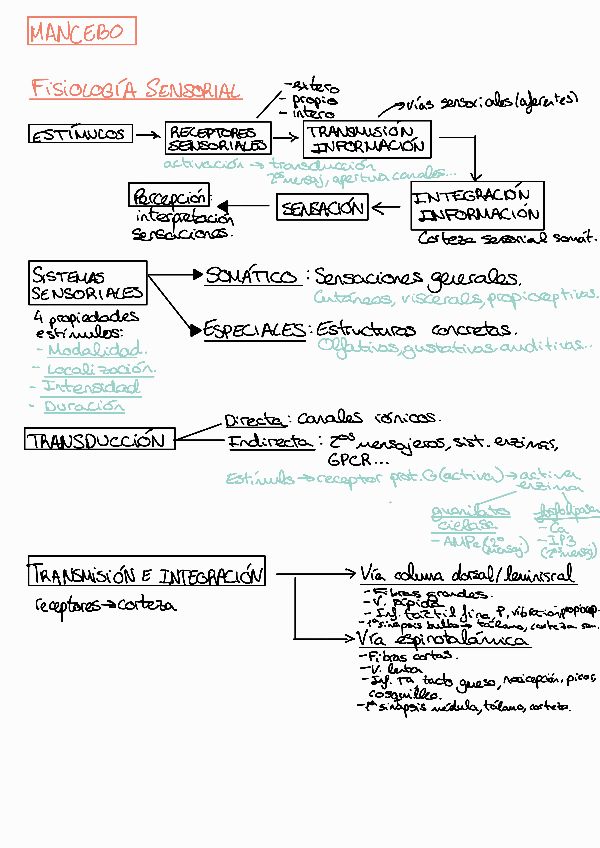 MANCEBO
FISIOLOGÍA SENSORIAL
- extero
- propio
- intero
vías sensoriales (aferentes)
ESTÍMULOS
RECEPTORES
SENSORIALES
TRANSMISIÓN
INFORMACIÓN
activación → transducción
2ºs mensaj, apertura canales...
INTEGRACIÓN
INFORMACIÓN
Corteza sensorial somát.
SENSACIÓN
Percepción:
interpretación
sensaciones.
SISTEMAS
SENSORIALES
SOMÁTICO : Sensaciones generales.
Cutáneas, viscerals, propioceptivas.
ESPECIALES : Estructuras concretas.
Olfativas, gustativas auditivas...
4 propiedades
estímulos:
- Modalidad.
- Localización.
- Intensidad
- Duración
TRANSDUCCIÓN
Directa : Canales iónicos.
Indirecta : 2ºs mensajeros, sist. enzimas,
GPCR...
Estímulo → receptor prot. G (activa) → activa
enzima
guanilato
ciclasa
- AMPc (2º mensaj)
fosfolipasa
- Ca
- IP3
(2º mensaj)
TRANSMISIÓN E INTEGRACIÓN
receptores → corteza
Vía columna dorsal/leminiscal
- Fibras grandes.
- V. rápida
- Inf. táctil fina, P, vibración, propiocep.
- 1ª sinapsis bulbo → tálamo, corteza sen.
Vía espinotalámica
- Fibras cortas.
- V. lenta
- Inf. Tª tacto grueso, nocicepción, picor,
cosquilleo.
- 1ª sinapsis médula, tálamo, corteza.